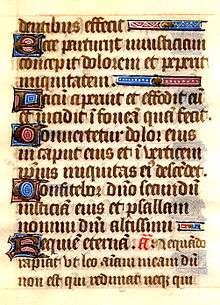 dentibus effecit
Ecce parturit iniusticiam
concepit dolorem et peperit
iniquitatem
Lacū aperuit et effodit eū
et incidit ī foueā quā fecit
Conuertetur dolor eius
in caput eius et ī verticem
ipsius iniquitas ei' descēdet
Confitebor dn̄o secundū
iusticiā eius et psallam
nomini dn̄i altissimi
Requiē eternā. a Nequādo
rapiat vt leo animā meam dū
non est qui redimat neq; qui